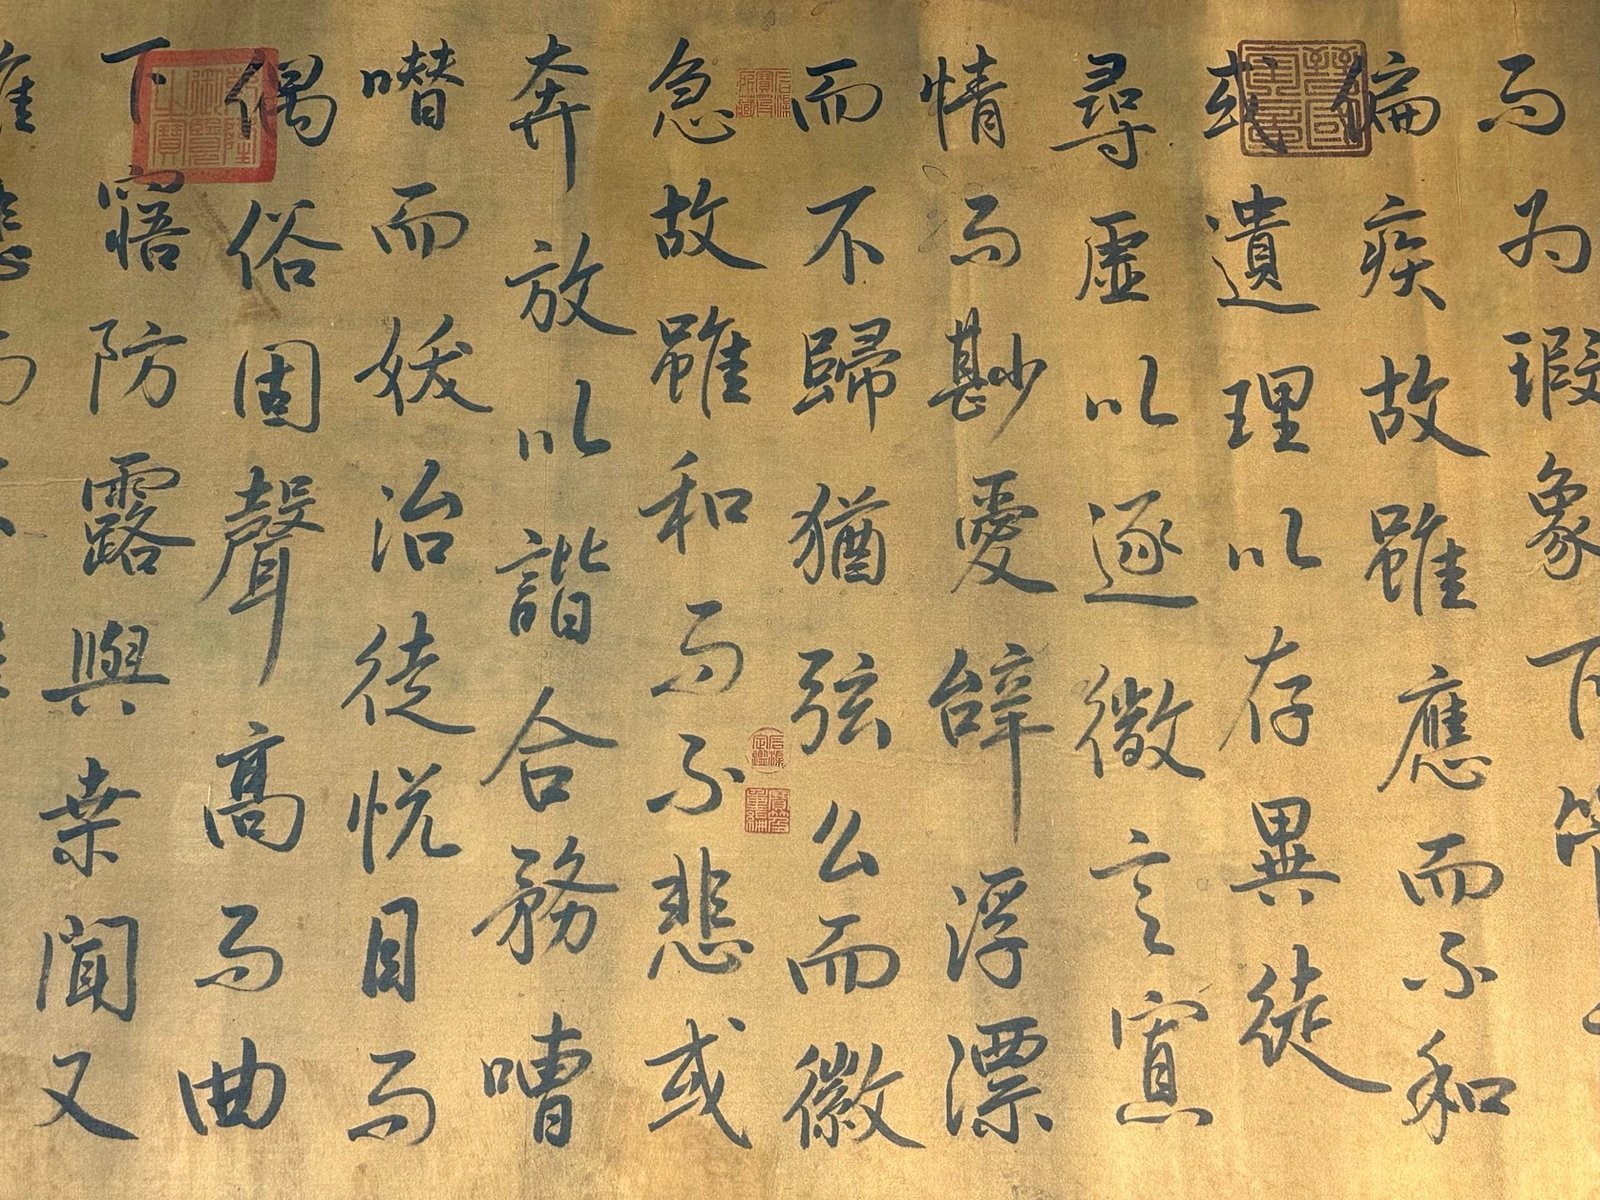 而为瑕象下管
偏疾故雖應而不和
或遺理以存異徒
尋虛以逐微言寡
情而尠愛辝浮漂
而不歸猶弦么而徽
急故雖和而不悲或
奔放以諧合務嘈
噆而妖冶徒悅目而
偶俗固聲高而曲
下寤防露與桒閒又
雖悲而不